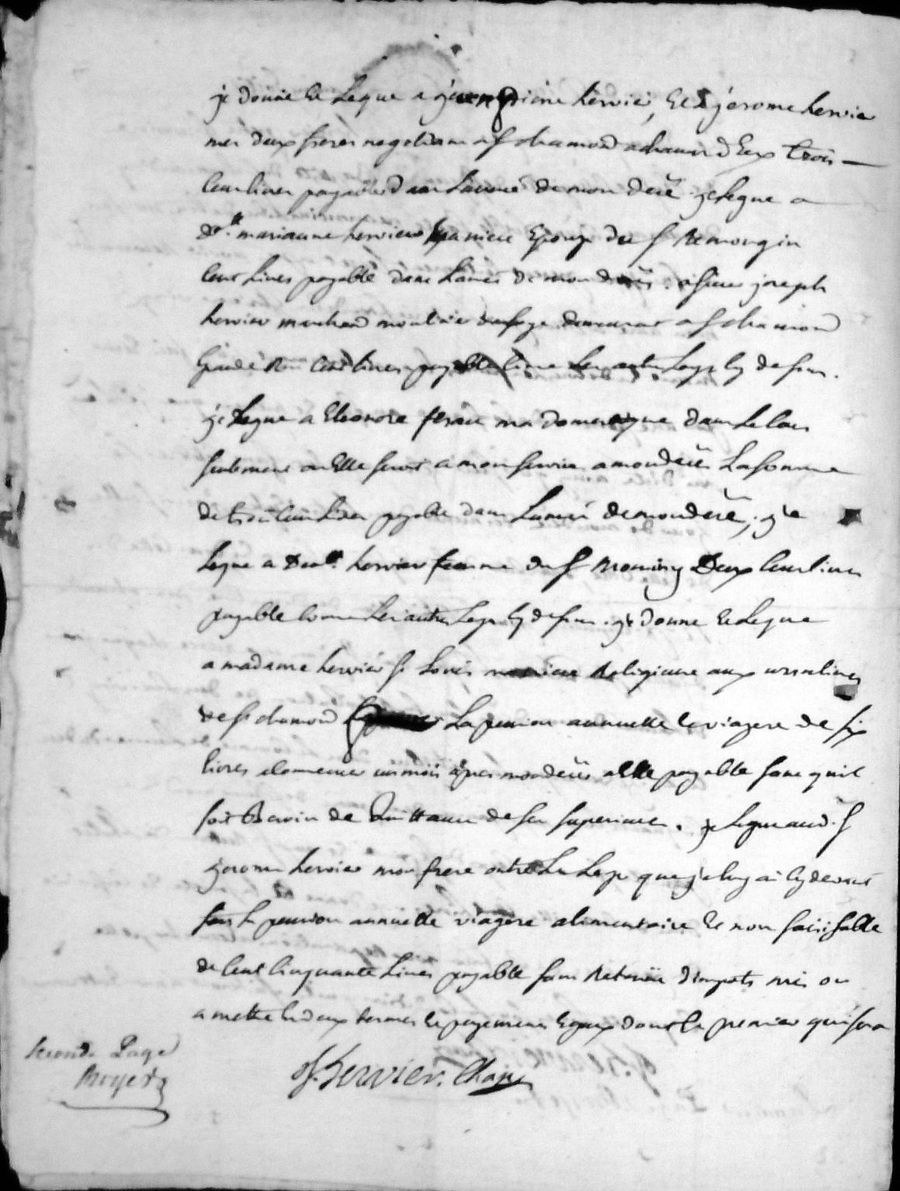 je donne et Legue a hervier, et a jerome hervier
mes deux freres negotians a st chamond a chacun d'Eux trois
cent livres payable dans L'année de mon decé. je Legue a
d.lle marianne hervier Epouze du s.r Remongin
cent Livres payable dans L'année de mon decés. a sieur joseph
hervier marchand moulinier demeurant a st chamond
cent livres payable comme Les autres Legs cy dessus.
je Legue a Eleonore ma domestique dans Le cas
seulement ou Elle seroit a mon service a mon decés La somme
de trois cent Livres payable dans L'année de mon decé, je
Legue a hervier femme du s.r Deux cent livres
payable comme Les autres Legs cy dessus. je donne et Legue
a madame hervier st Louis Religieuse aux ursulines
de st chamond La pension annuelle et viagere de six
livres a comencer un mois apres mon decés a Elle payable sans qu'il
soit Besoin de Quittance de sa superieure. je Legue aud. s.r
jerome hervier mon frere outre Le Legs que je luy ai cy dessus
fait La pension annuelle viagere alimentaire et non saisissable
de cent cinquante Livres payable sans Retenue d'impots mis ou
a mettre en deux termes et payemens Egaux dont Le premier qui sera
Seconde Page
Royet
Hervier. Chan